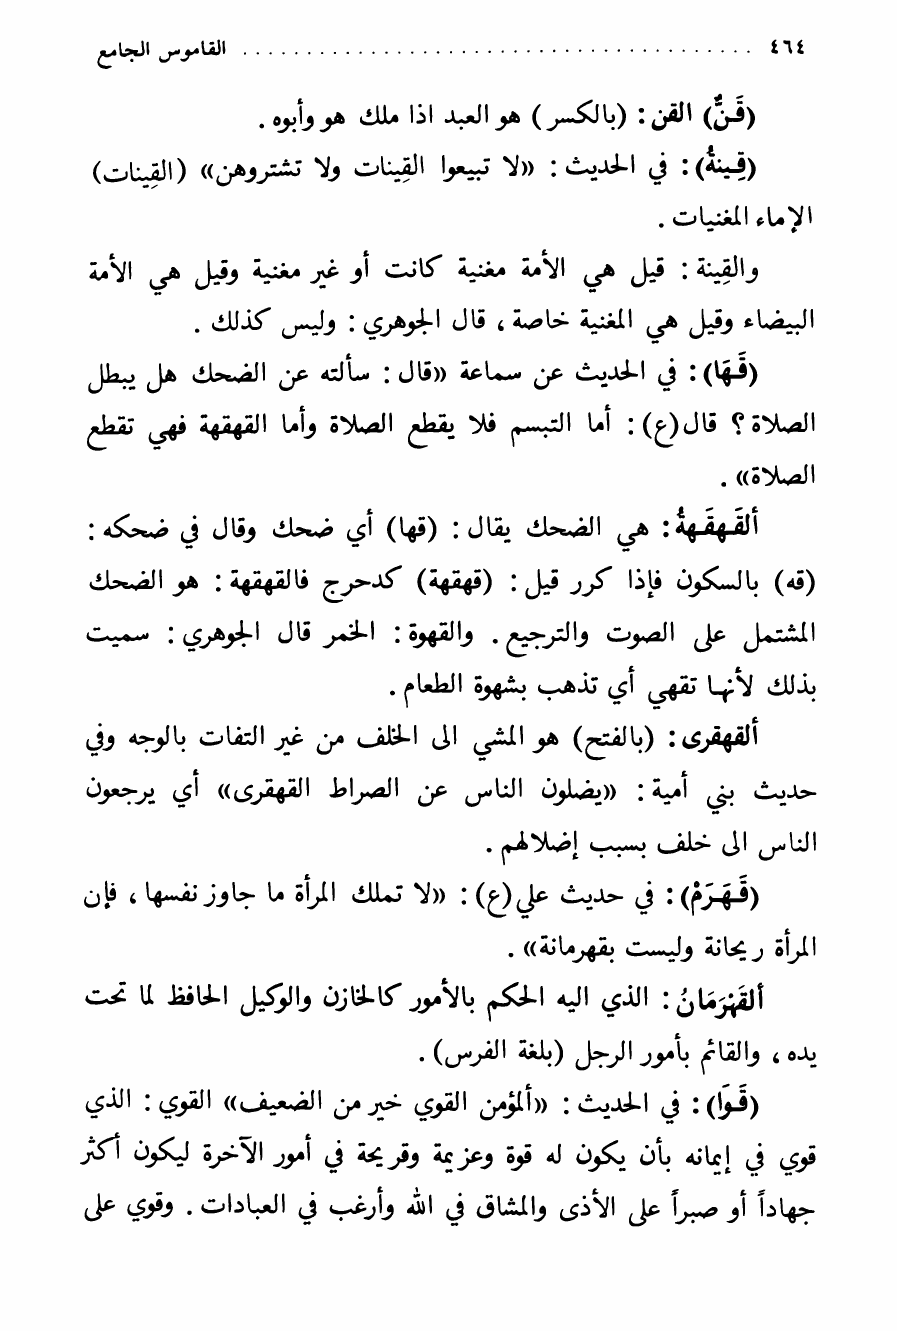 ٤٦٤ ........................................ القاموس الجامع
(قَـنٌّ) القن : (بالكسر) هو العبد اذا ملك هو وأبوه .
(قِـينةُ) : في الحديث : «لا تبيعوا القِينات ولا تشتروهن» (القِينات)
الإماء المغنيات .
والقِينة : قيل هي الأمة مغنية كانت أو غير مغنية وقيل هي الأمة
البيضاء وقيل هي المغنية خاصة ، قال الجوهري : وليس كذلك .
(قَـهَا) : في الحديث عن سماعة «قال : سألته عن الضحك هل يبطل
الصلاة ؟ قال(ع) : أما التبسم فلا يقطع الصلاة وأما القهقهة فهي تقطع
الصلاة» .
ألقَـهقَـهةُ : هي الضحك يقال : (قها) أي ضحك وقال في ضحكه :
(قه) بالسكون فإذا كرر قيل : (قهقهة) كدحرج فالقهقهة : هو الضحك
المشتمل على الصوت والترجيع . والقهوة : الخمر قال الجوهري : سميت
بذلك لأنها تقهي أي تذهب بشهوة الطعام .
ألقهقرى : (بالفتح) هو المشي الى الخلف من غير التفات بالوجه وفي
حديث بني أمية : «يضلون الناس عن الصراط القهقرى» أي يرجعون
الناس الى خلف بسبب إضلالهم .
(قَـهَـرَمْ) : في حديث علي(ع) : «لا تملك المرأة ما جاوز نفسها ، فإن
المرأة ريحانة وليست بقهرمانة» .
ألقَهْرَمَانُ : الذي اليه الحكم بالأمور كالخازن والوكيل الحافظ لما تحت
يده ، والقائم بأمور الرجل (بلغة الفرس) .
(قَـوَا) : في الحديث : «ألمؤمن القوي خير من الضعيف» القوي : الذي
قوي في إيمانه بأن يكون له قوة وعزيمة وقريحة في أمور الآخرة ليكون أكثر
جهاداً أو صبراً على الأذى والمشاق في الله وأرغب في العبادات . وقوي على